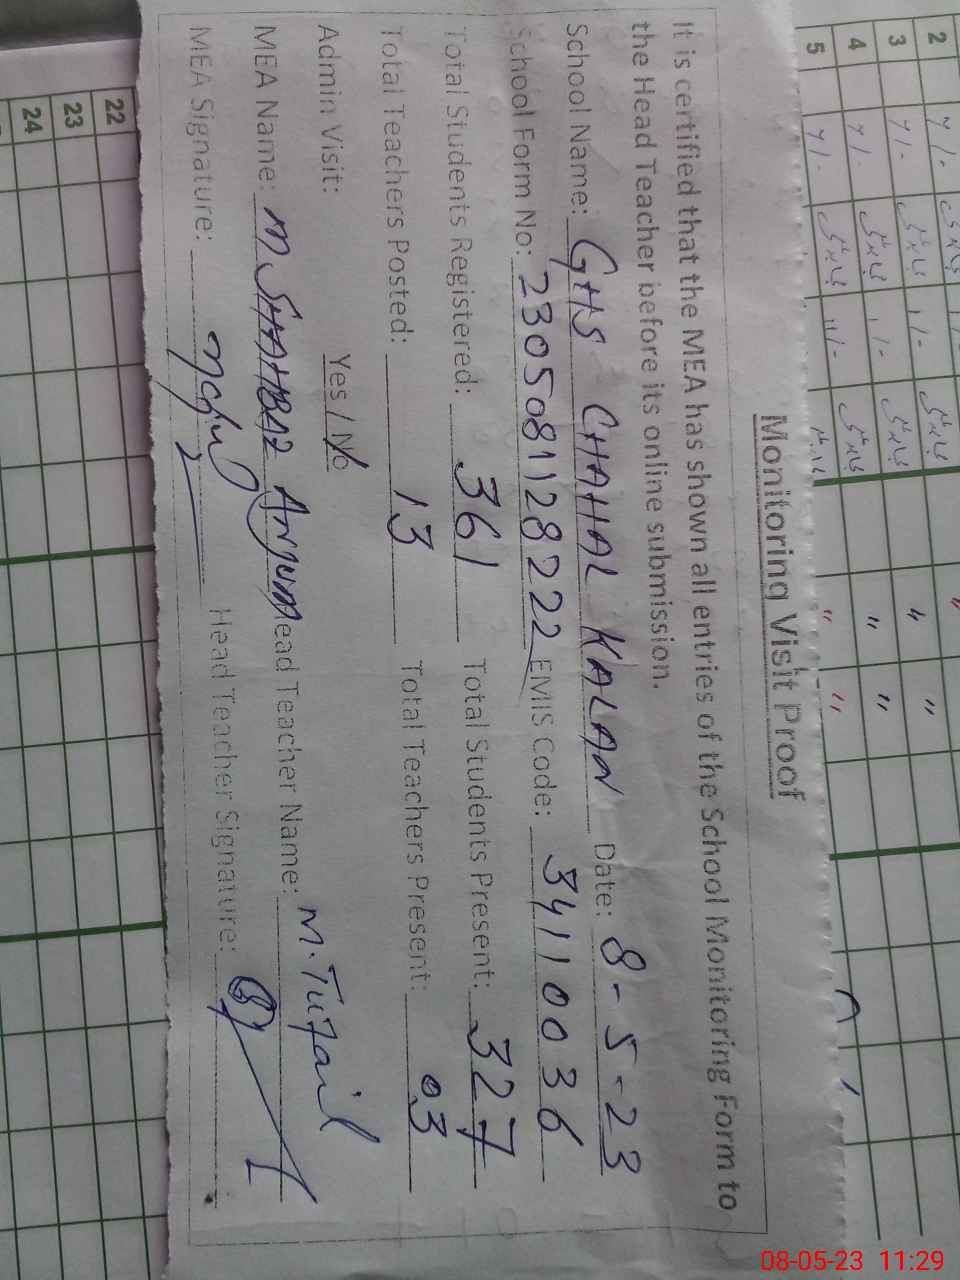 Monitoring Visit Proof
It is certified that the MEA has shown all entries of the School Monitoring Form to
the Head Teacher before its online submission.
School Name: GHS CHAHAL KALAN Date: 8-5-23
School Form No: 2305081128222 EMIS Code: 34110036
Total Students Registered: 361 Total Students Present: 327
Total Teachers Posted: 13 Total Teachers Present: 03
Admin Visit: Yes / No
MEA Name: M SHAHBAZ Anjum Head Teacher Name: M. Tufail
MEA Signature: Head Teacher Signature:
2
3
4
5
22
23
24
08-05-23 11:29